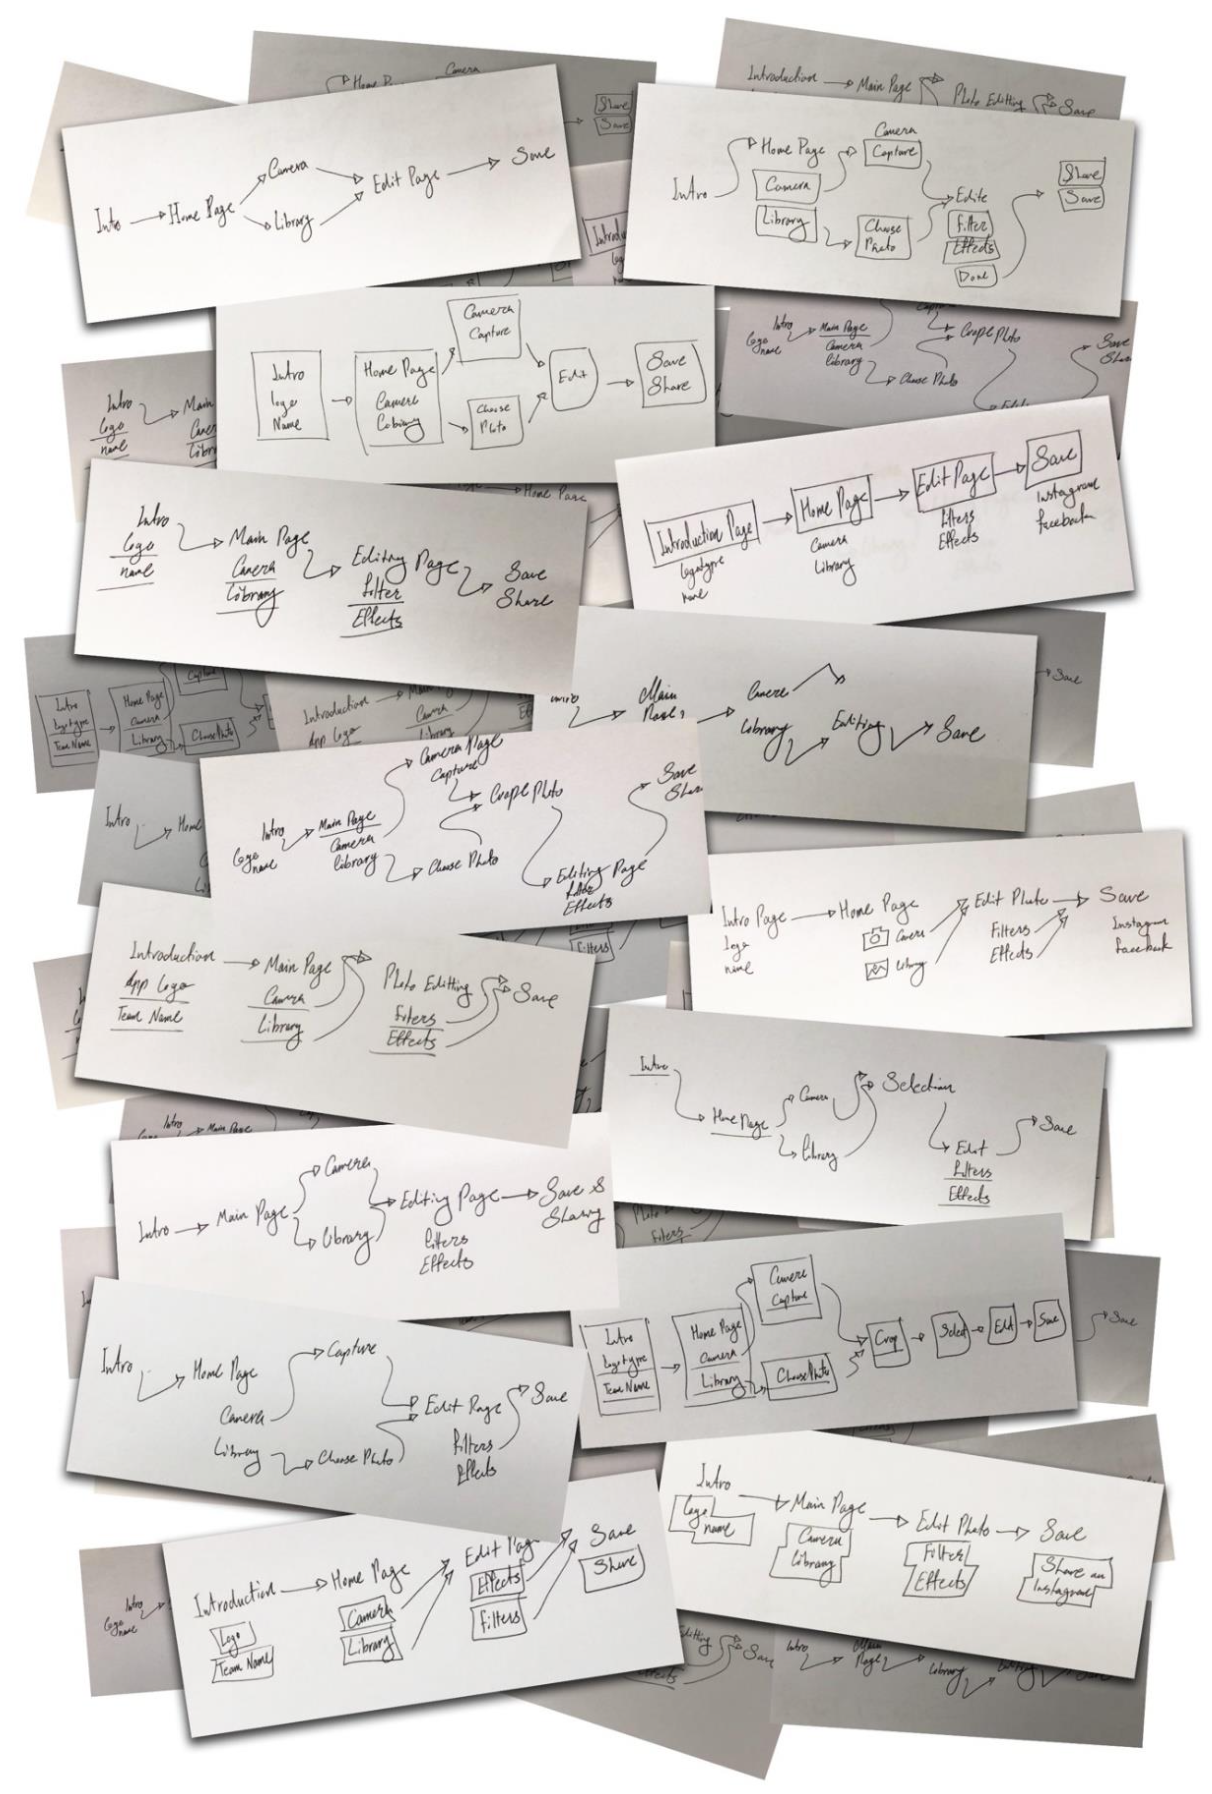 Home Page
Camera
Share
Save
Introduction
Main Page
Photo Editting
Save
Intro
Home Page
Camera
Library
Edit Page
Save
Intro
Home Page
Camera
Library
Camera
Capture
Choose
Photo
Edite
Filter
Effects
Done
Share
Save
Intro
logo
Name
Home Page
Camera
Camera
Capture
Choose
Photo
Edit
Save
Share
Intro
logo
name
Main Page
Camera
Library
Choose Photo
Save
Intro
logo
name
Home Page
Introduction Page
logotype
name
Home Page
Camera
Library
Edit Page
Effects
Save
Instagram
facebook
Intro
logo
name
Main Page
Camera
Library
Editing Page
filter
Effects
Save
Share
Intro
logotype
Team Name
Home Page
Camera
Library
Capture
Choose Photo
Introduction
App Logo
Camera
Save
Main
Page
Camera
Library
Editing
Save
Intro
logo
name
Main Page
Camera
library
Camera Page
Capture
Choose Photo
Editing Page
filter
Effects
Save
Intro
Intro Page
logo
name
Home Page
Camera
library
Edit Photo
Filters
Effects
Save
Instagram
facebook
Introduction
App Logo
Team Name
Main Page
Camera
Library
Photo Editting
Filters
Effects
Save
Filters
Intro
Home Page
Camera
Library
Selection
Edit
filters
Effects
Save
Intro
Main Page
Intro
Main Page
Camera
Library
Editing Page
filters
Effects
Save &
Sharing
Filters
Intro
logotype
Team Name
Home Page
Camera
Library
Camera
Capture
Choose Photo
Crop
Select
Edit
Save
Save
Intro
Home Page
Camera
Library
Capture
Choose Photo
Edit Page
filters
Effects
Save
Intro
logo
name
Main Page
Camera
library
Edit Photo
Filter
Effects
Save
Share on
Instagram
Introduction
Logo
Team Name
Home Page
Camera
Library
Edit Page
Effects
filters
Save
Share
Intro
logo
name
Save
Intro
Main
Page
library